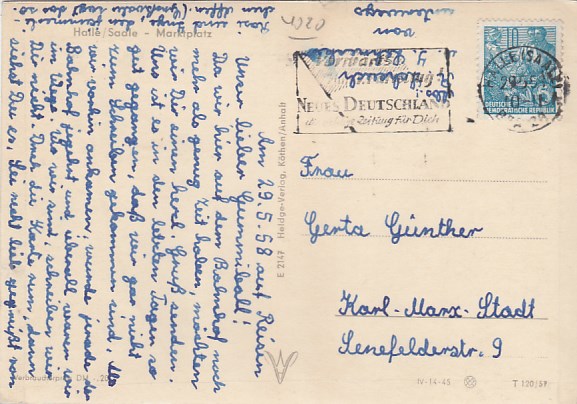 Halle/Saale - Marktplatz
Am 29.5.58 auf Reisen
Unser lieber Gummiball!
Da wir hier auf dem Bahnhof noch
mehr als genug Zeit haben, möchten
wir Dir einen herzl. Gruß senden.
Uns ist es in den letzten Tagen so
gut gegangen, daß wir gar nicht
zum Schreiben gekommen sind. Als
wir vorhin ankamen, wurde gerade der
Bahnhof und überall waren wir
im Wege. Wo wir sind, schreiben wir
Dir nicht. Dreh die Karte rum, dann
siehst Du es. Sei recht lieb gegrüßt von
unterwegs
von
E 2147 Heldge-Verlag, Köthen/Anhalt
Vorwärts
NEUES DEUTSCHLAND
Zeitung für Dich
HALLE (SAALE)
DEUTSCHE DEMOKRATISCHE REPUBLIK
Frau
Gerta Günther
Karl-Marx-Stadt
Senefelderstr. 9
IV-14-45
T 120/57